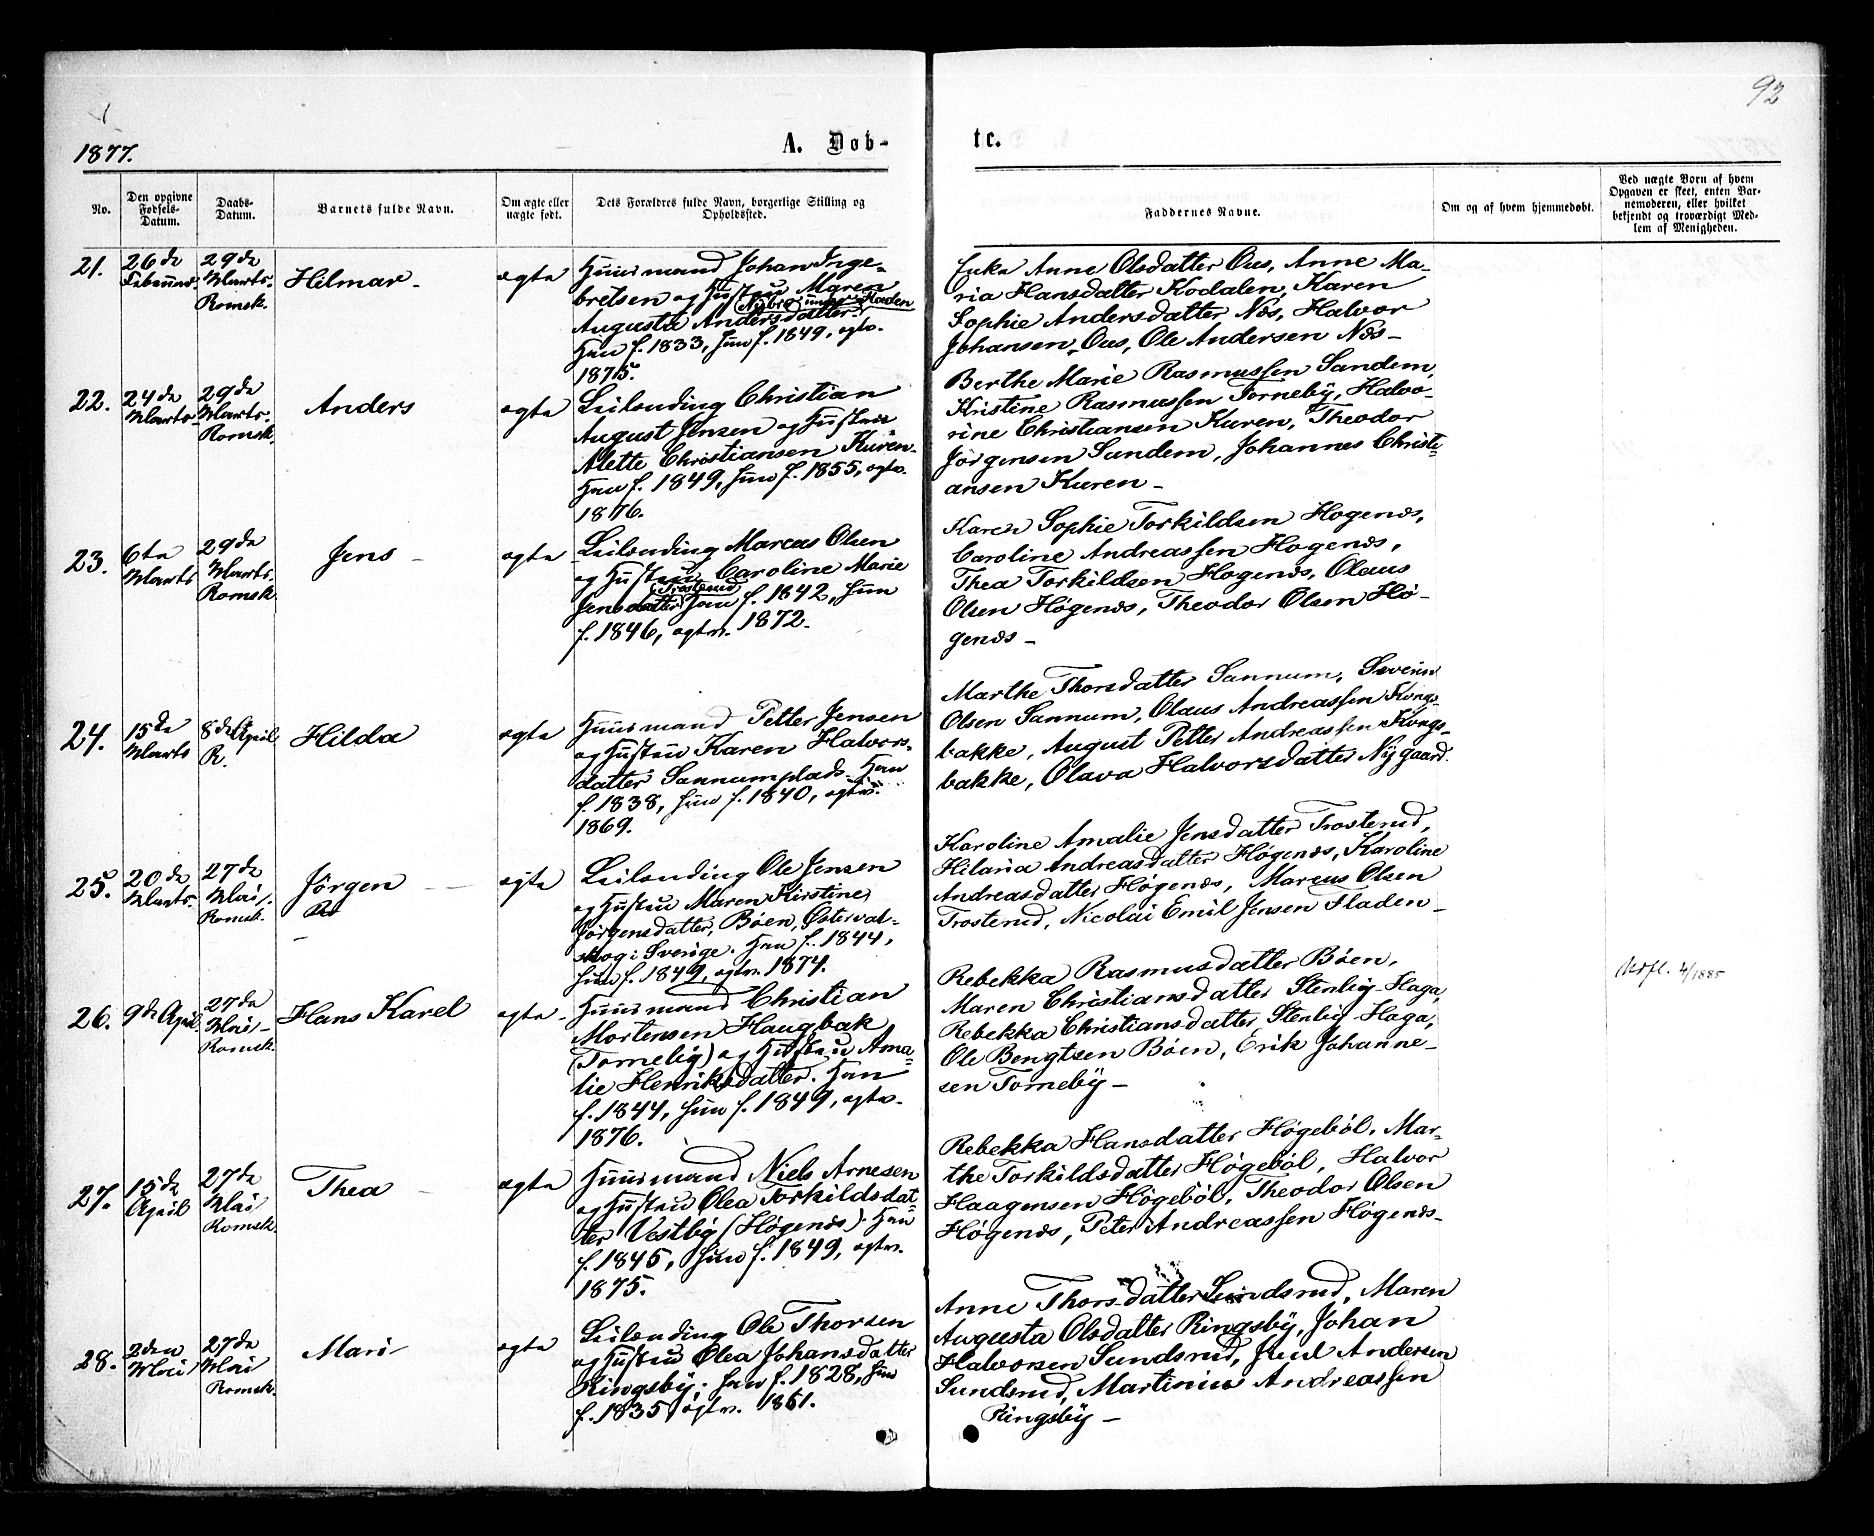 92
1877.
A. Døb-
te.
No.
Den opgivne Fødsels-Datum.
Daabs-Datum.
Barnets fulde Navn.
Om ægte eller uægte født.
Dets Forældres fulde Navn, borgerlige Stilling og Opholdssted.
Faddernes Navne.
Om og af hvem hjemmedøbt.
Ved uægte Børn af hvem Opgaven er skeet, enten Barnemoderen, eller hvilket bekjendt og troværdigt Medlem af Menigheden.
21.
26de Februar
29de Marts. Romsk.
Hilmar -
ægte
Huusmand Johan Inge-
bretsen og Hustru Maren
Augusta Andersdatter
Han f. 1833, hun f. 1849, egtv.
1875.
Enke Anne Olsdatter Ous, Anne Ma-
ria Hansdatter Kodalen, Karen
Sophie Andersdatter Næs, Halvor
Johansen Ous, Ole Andersen Næs -
22.
24de Marts
29de Marts. Romsk.
Anders
ægte
Leilænding Christian
August Jensen og Hustru
Alette Christiansen Kuren.
Han f. 1849, hun f. 1855, egtv.
1876.
Berthe Marie Rasmussen Sandem,
Kristine Rasmussen Torneby, Halvo-
rine Christiansen Kuren, Theodor
Jörgensen Sandem, Johannes Christi-
ansen Kuren -
23.
6te Marts
29de Marts. Romsk.
Jens -
ægte
Leilænding Marcus Olsen
og Hustru Caroline Marie
Jensdatter Trosterud Han f. 1842, hun
f. 1846, egtv. 1872.
Karen Sophie Torkildsen Hogenæs,
Caroline Andreassen Hogenæs,
Thea Torkildsen Hogenæs, Olaus
Olsen Høgenæs, Theodor Olsen Hø-
genæs -
24.
15de Marts
8de April R.
Hilda
ægte
Huusmand Petter Jensen
og Hustru Karen Halvors-
datter Sannumplads. Han
f. 1838, hun f. 1840, egtv.
1869.
Marthe Thorsdatter Sannum, Severin
Olsen Sannum, Olaus Andreassen Kongs-
bakke, August Petter Andreassen Kongs-
bakke, Olava Halvorsdatter Nygaard.
25.
20de Marts.
27de Mai. Romsk.
Jörgen -
ægte
Leilænding Ole Jensen
og Hustru Maren Kirstine
Jörgensdatter, Bøen, Østerval-
skog i Sverige. Han f. 1844,
hun f. 1849, egtv. 1874.
Karoline Amalie Jensdatter Trosterud,
Hilaria Andreasdatter Høgenæs, Karoline
Andreasdatter Høgenæs, Marcus Olsen
Trosterud, Nicolai Emil Jensen Fladen -
26.
9de April
27de Mai - Romsk.
Hans Karel
ægte -
Huusmand Christian
Mortensen Haugbak
(Torneby) og Hustru Ama-
lie Henriksdatter. Han
f. 1844, hun f. 1849, egtv.
1876.
Rebekka Rasmusdatter Bøen,
Maren Christiansdatter Stenby-Haga,
Rebekka Christiansdatter Stenby-Haga,
Ole Bengtsen Bøen, Erik Johanne-
sen Torneby -
4/1885
27.
15de April
27de Mai Romsk.
Thea -
ægte
Huusmand Niels Arnesen
og Hustru Olea Torkildsdat-
ter Vestby (Høgenæs). Han
f. 1845, hun f. 1849, egtv.
1875.
Rebekka Hansdatter Høgeböl, Mar-
the Torkildsdatter Høgeböl, Halvor
Haagensen Høgeböl, Theodor Olsen
Høgenæs, Peter Andreassen Høgenæs -
28.
2den Mai
27de Mai Romsk.
Mari -
ægte
Leilænding Ole Thorsen
og Hustru Olea Johansdatter
Ringsby; han f. 1828, hun
f. 1835, egtv. 1861.
Anne Thorsdatter Sundsrud, Maren
Augusta Olsdatter Ringsby, Johan
Halvorsen Sundsrud, Juul Andersen
Sundsrud, Martinius Andreassen
Ringsby -